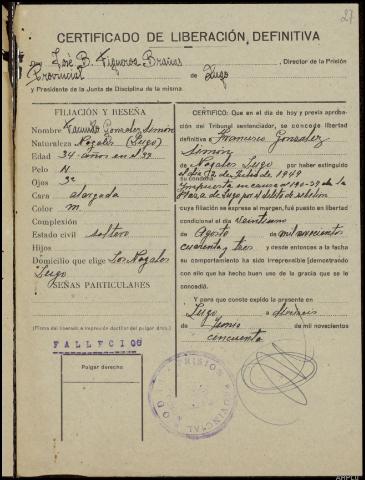 27
CERTIFICADO DE LIBERACIÓN DEFINITIVA
Don José B. Figueroa Brañas, Director de la Prisión
Provincial de Lugo
y Presidente de la Junta de Disciplina de la misma.
FILIACIÓN Y RESEÑA
Nombre Francisco Gonzalez Simón
Naturaleza Nogales (Lugo)
Edad 34 años en el 39
Pelo N.
Ojos
Cara alargada
Color m.
Complexión
Estado civil soltero
Hijos
Domicilio que elige Los Nogales
Lugo
SEÑAS PARTICULARES
(Firma del liberado e impresión dactilar del pulgar dcho.)
FALLECIDO
Pulgar derecho
CERTIFICO: Que en el día de hoy y previa aprobación
del Tribunal sentenciador, se concede libertad
definitiva a Francisco Gonzalez
Simón
de Nogales Lugo por haber extinguido
el día 12 de Julio de 1949
su condena
impuesta en causa nº 190-39 de la
Plaza de Lugo por el delito de rebelion
cuya filiación se expresa al margen, fué puesto en libertad
condicional el día veintiuno
de Agosto de mil novecientos
cuarenta y tres y desde entonces a la fecha
su comportamiento ha sido irreprensible demostrando
con ello que ha hecho buen uso de la gracia que se le
concedió.
Y para que conste expido la presente en
Lugo a dieciseis
de Junio de mil novecientos
cincuenta
PRISION PROVINCIAL